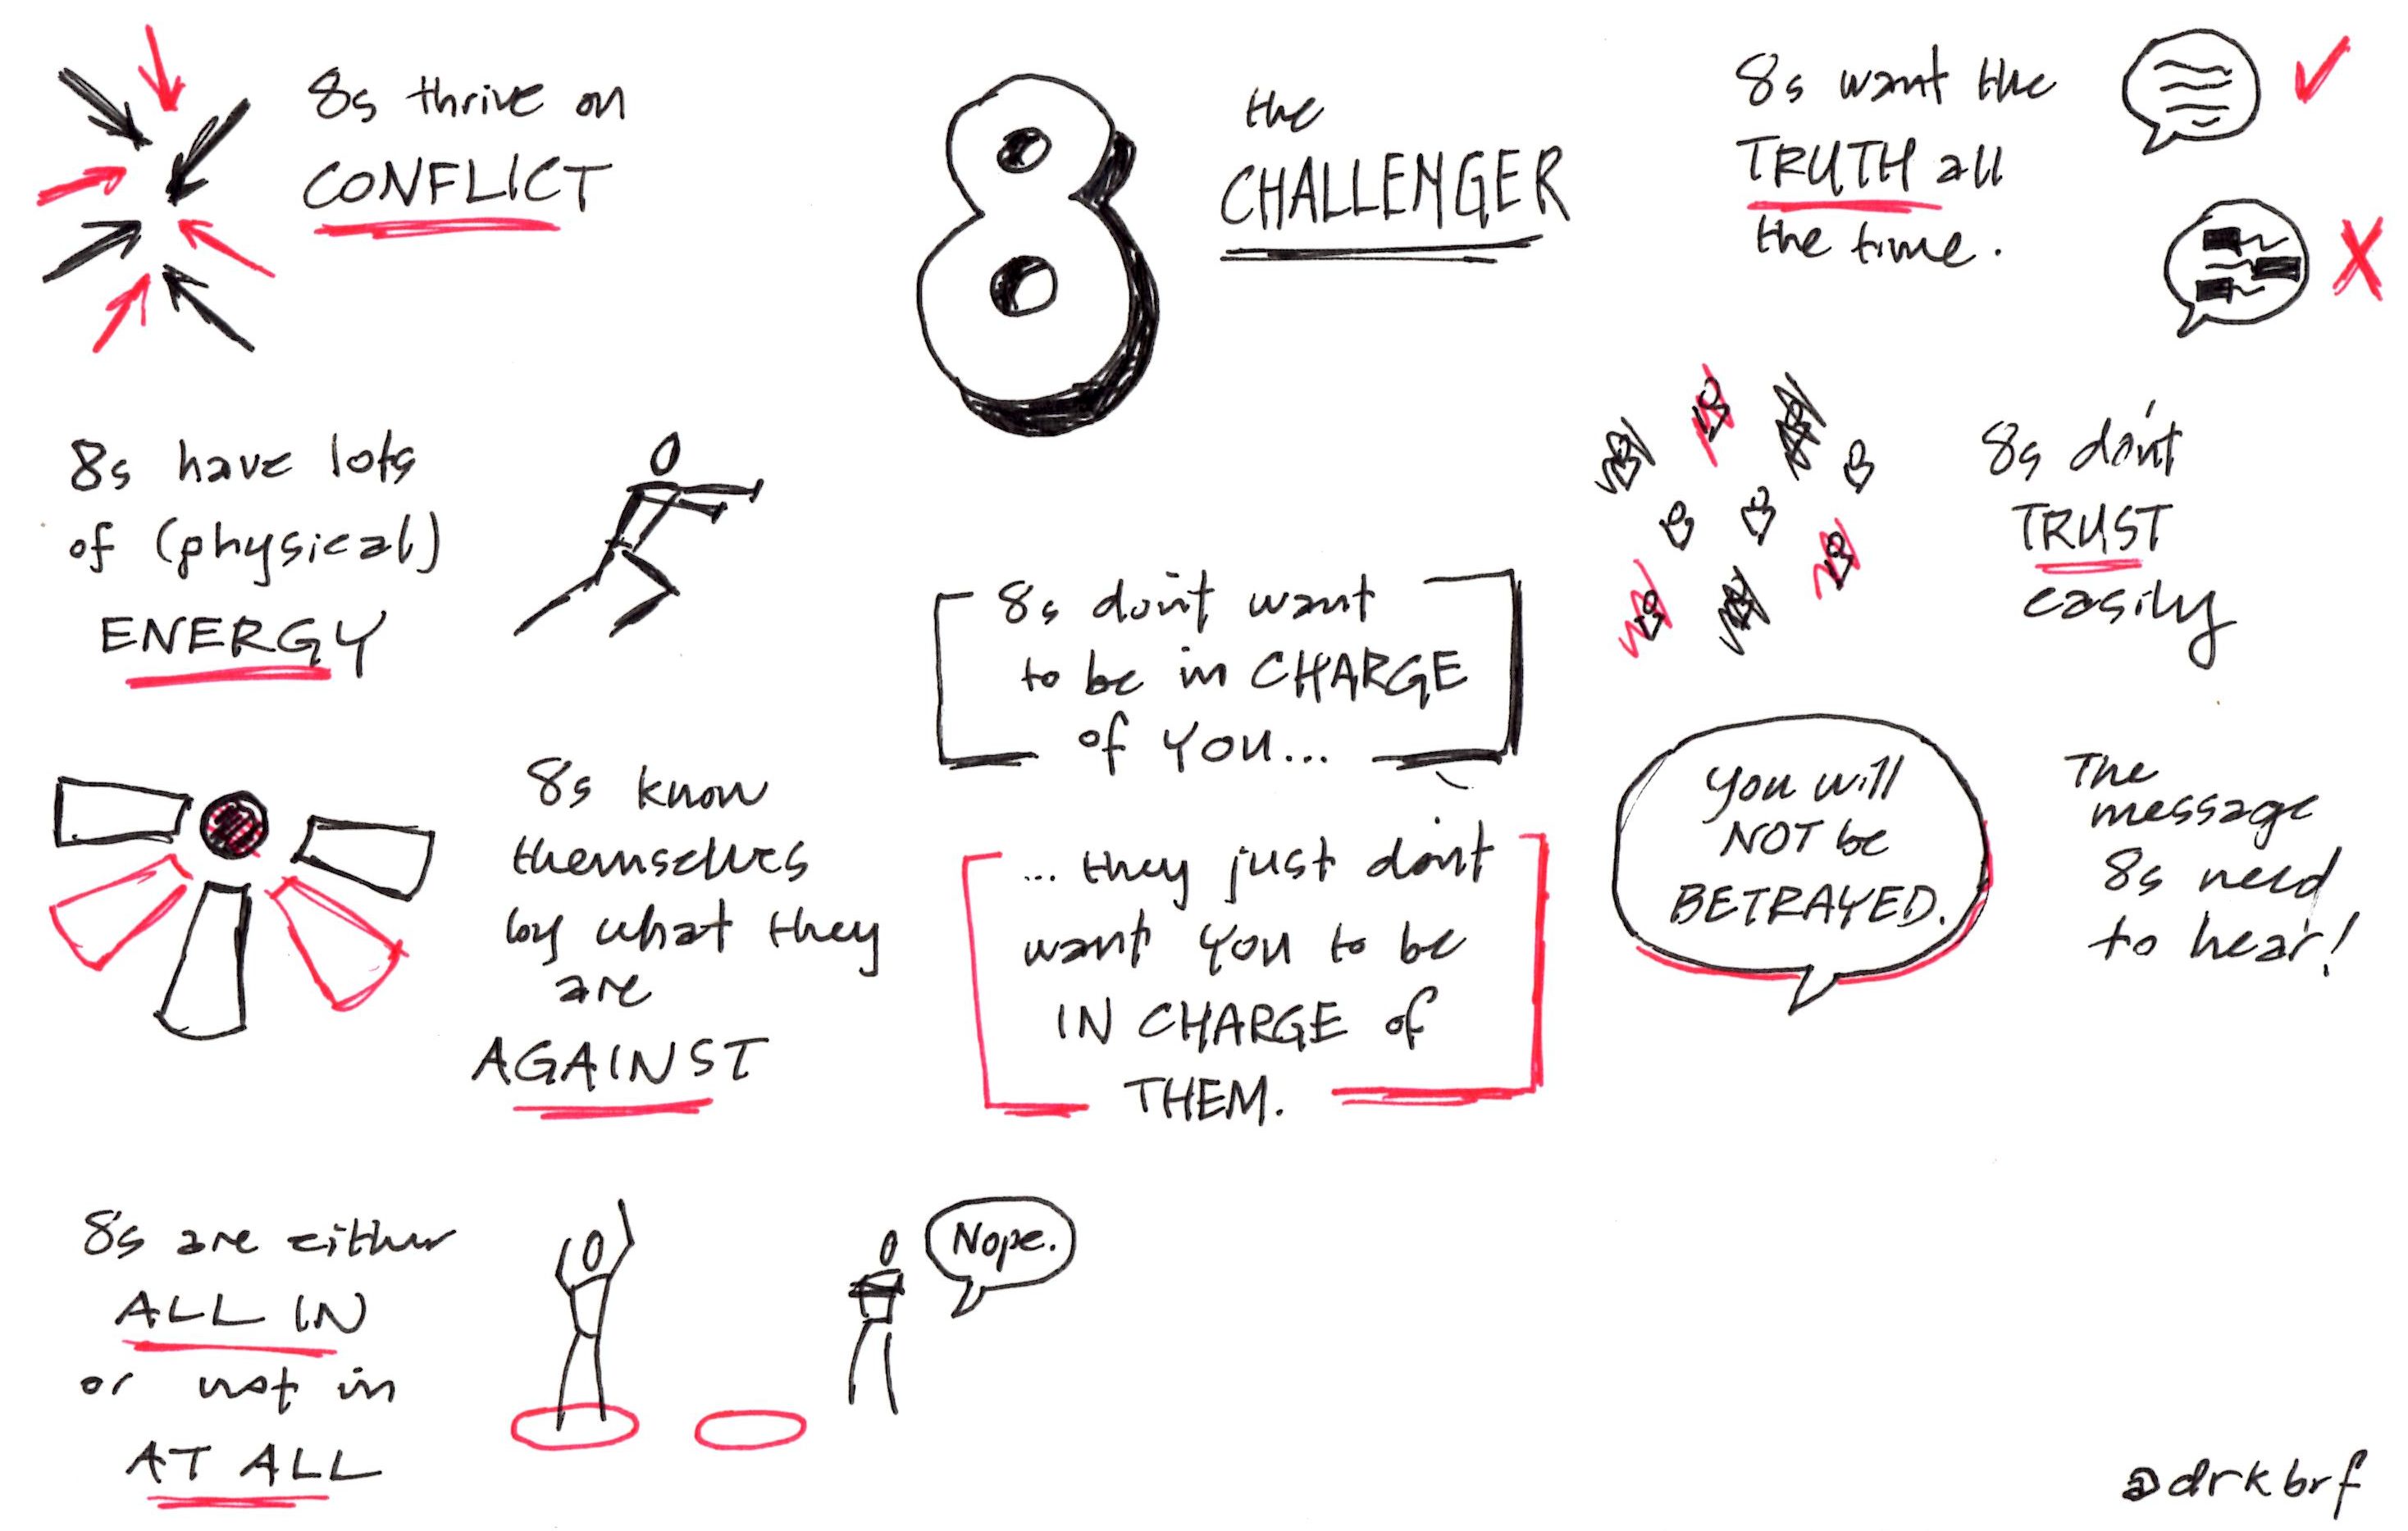 8s thrive on
CONFLICT
8
the
CHALLENGER
8s want the
TRUTH all
the time.
8s have lots
of (physical)
ENERGY
8s don't
TRUST
easily
8s don't want
to be in CHARGE
of YOU...
... they just don't
want YOU to be
IN CHARGE of
THEM.
8s know
themselves
by what they
are
AGAINST
You will
NOT be
BETRAYED.
The
message
8s need
to hear!
8s are either
ALL IN
or not in
AT ALL
Nope.
@drkbrf